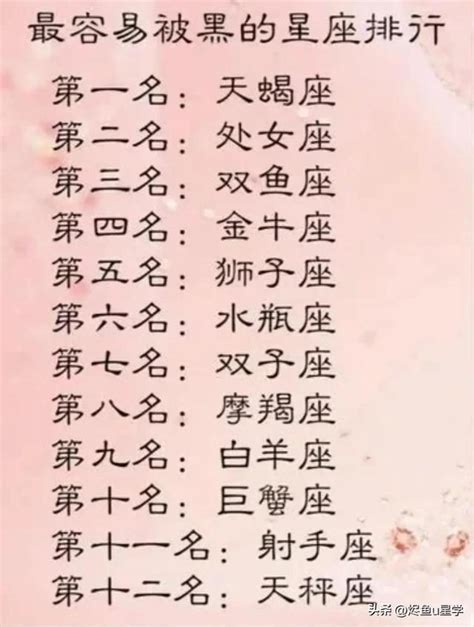 最容易被黑的星座排行
第一名：天蝎座
第二名：处女座
第三名：双鱼座
第四名：金牛座
第五名：狮子座
第六名：水瓶座
第七名：双子座
第八名：摩羯座
第九名：白羊座
第十名：巨蟹座
第十一名：射手座
第十二名：天秤座
头条 @烬鱼u星学